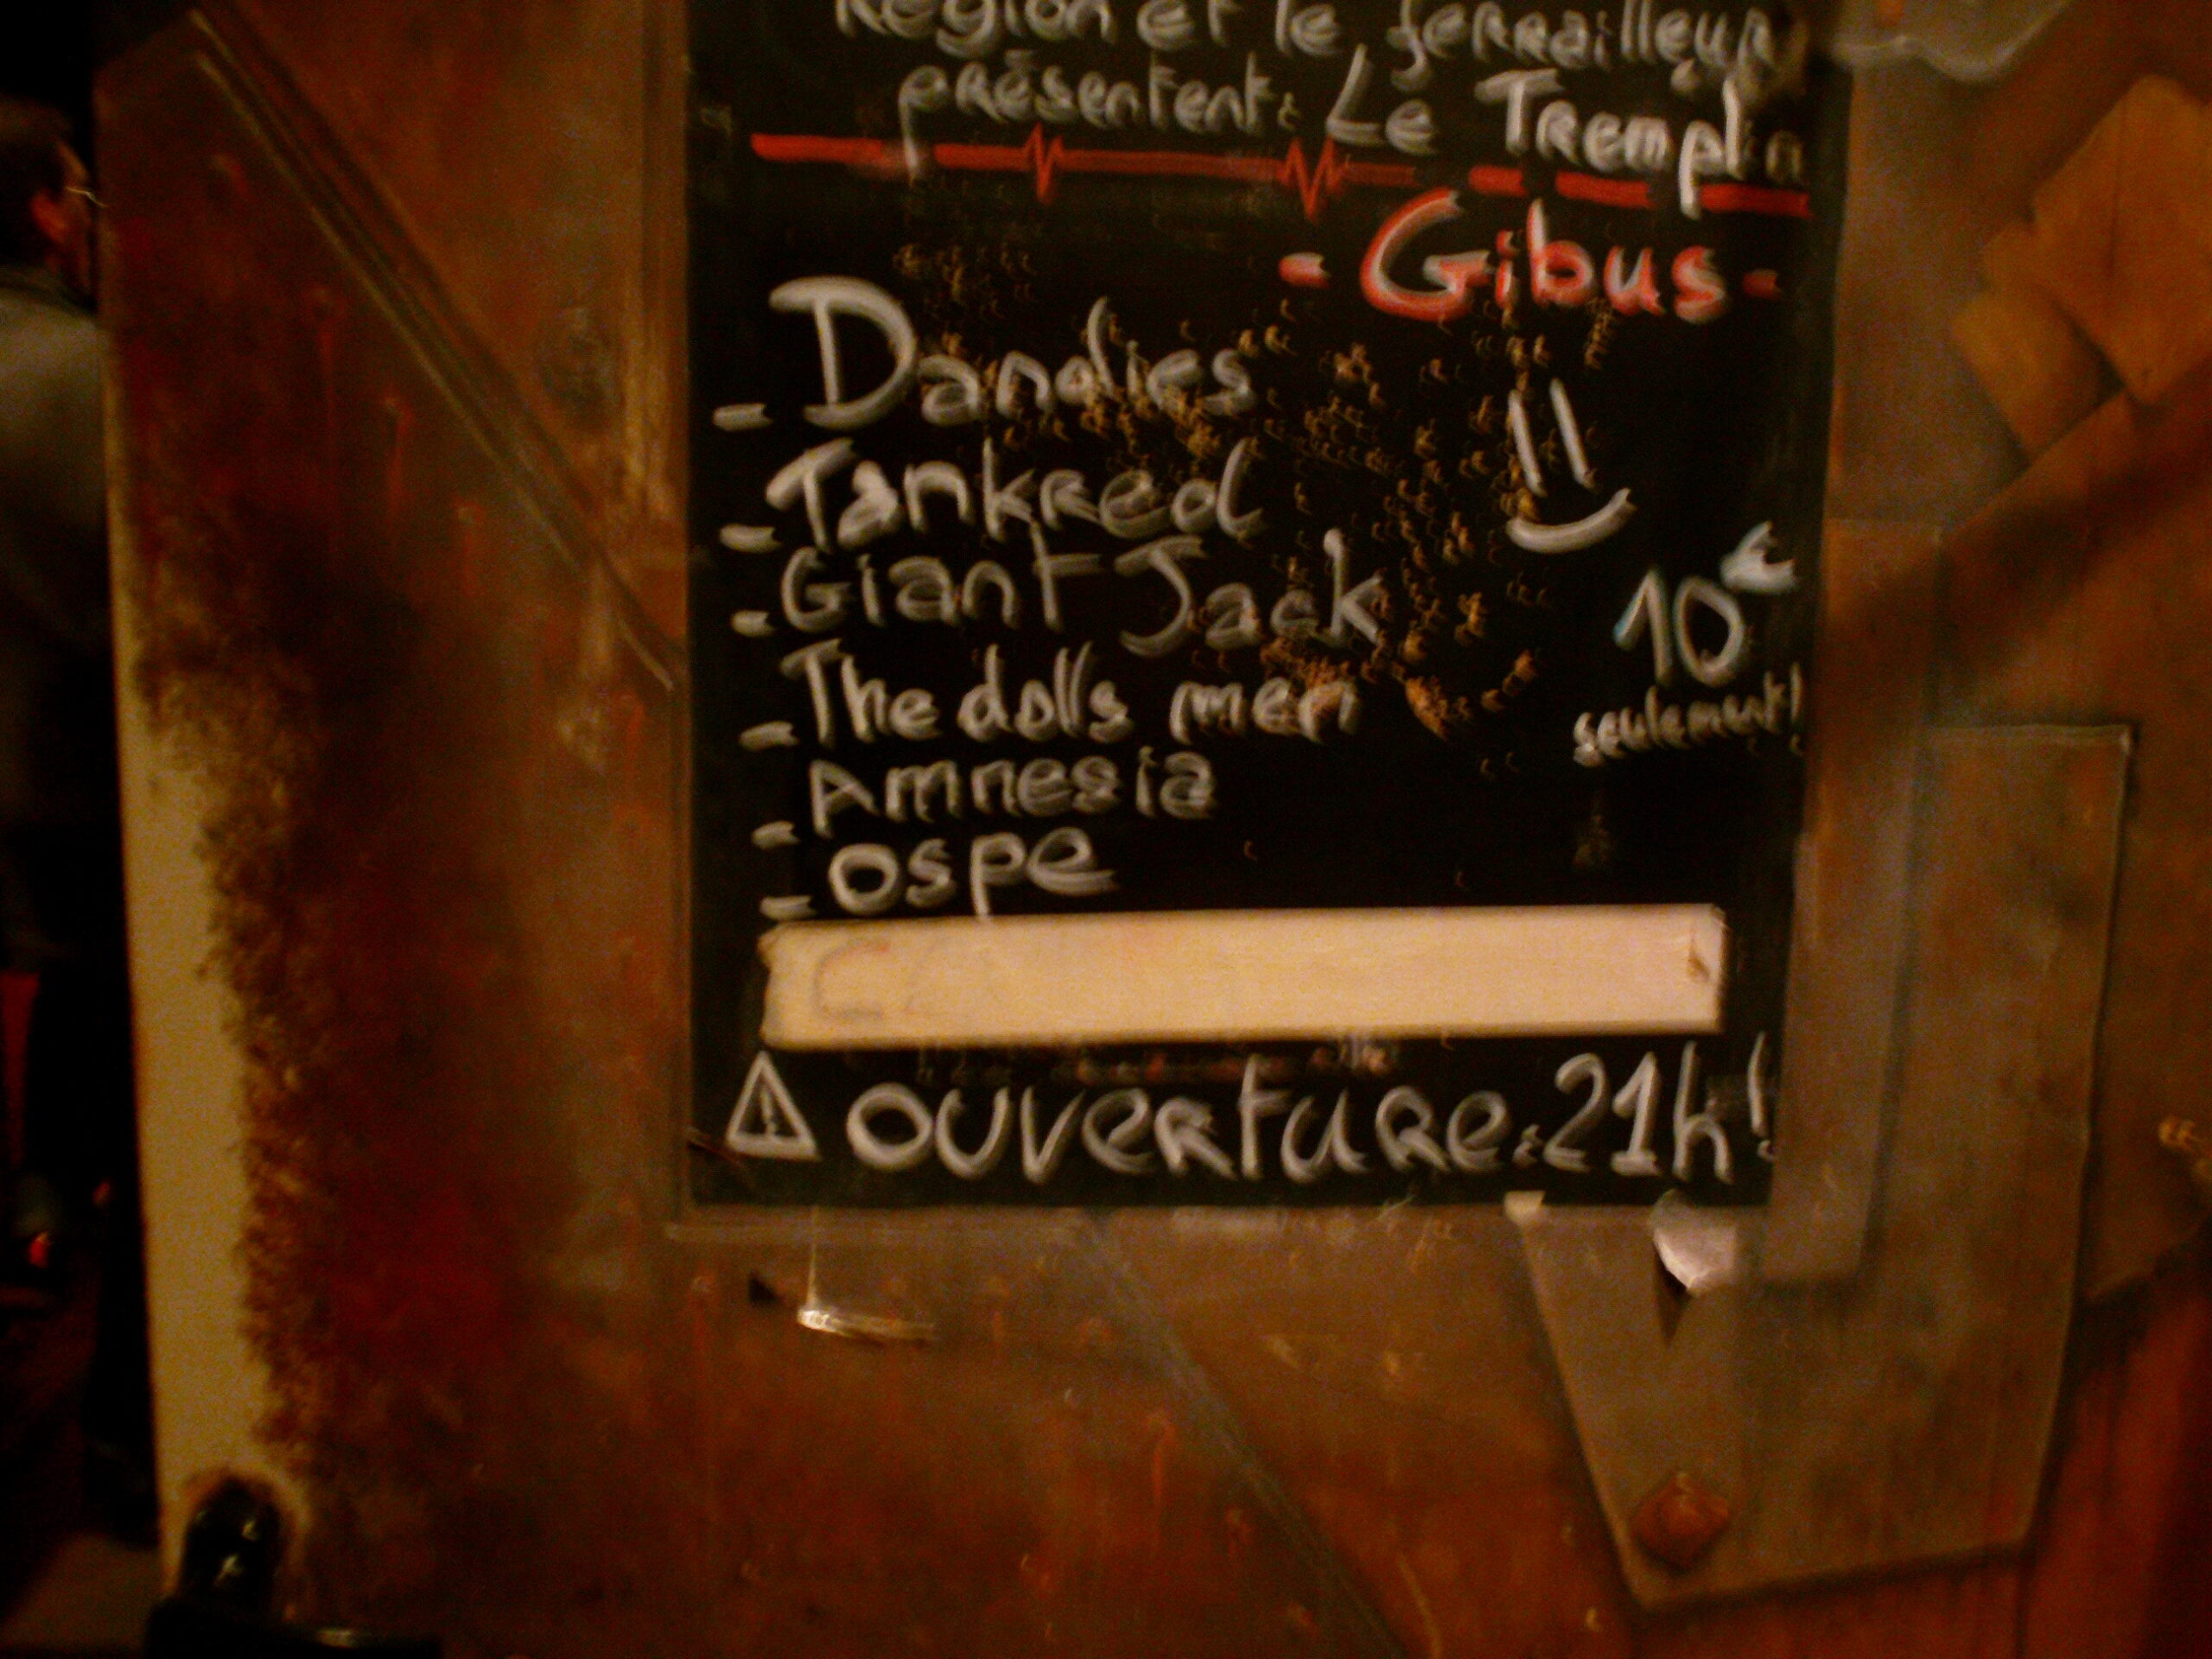 Région et le ferrailleur
présentent: Le Tremplin
- Gibus -
- Dandies
- Tankred
- Giant Jack
- The dolls men
- Amnesia
- Ospe
10€
seulement!
ouverture: 21h!